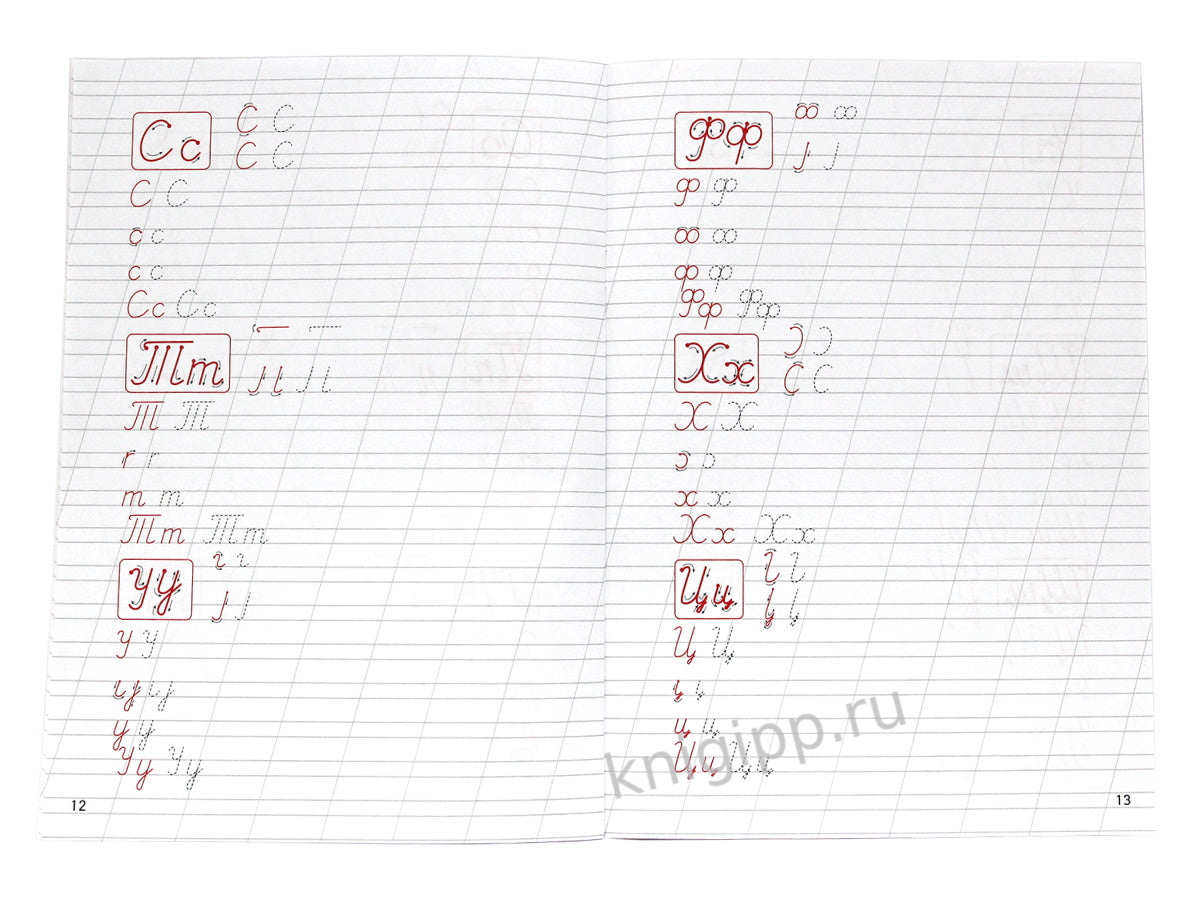 Сс С С
С С
С С
с с
с с
Сс Сс
Тт
Т Т
г г
т т
Тт Тт
Уу
У У
у у
Уу Уу
12
Фф
Ф Ф
ф ф
Фф Фф
Хх
С С
Х Х
х х
Хх Хх
Цц
Ц Ц
ц ц
Цц Цц
13
knigipp.ru